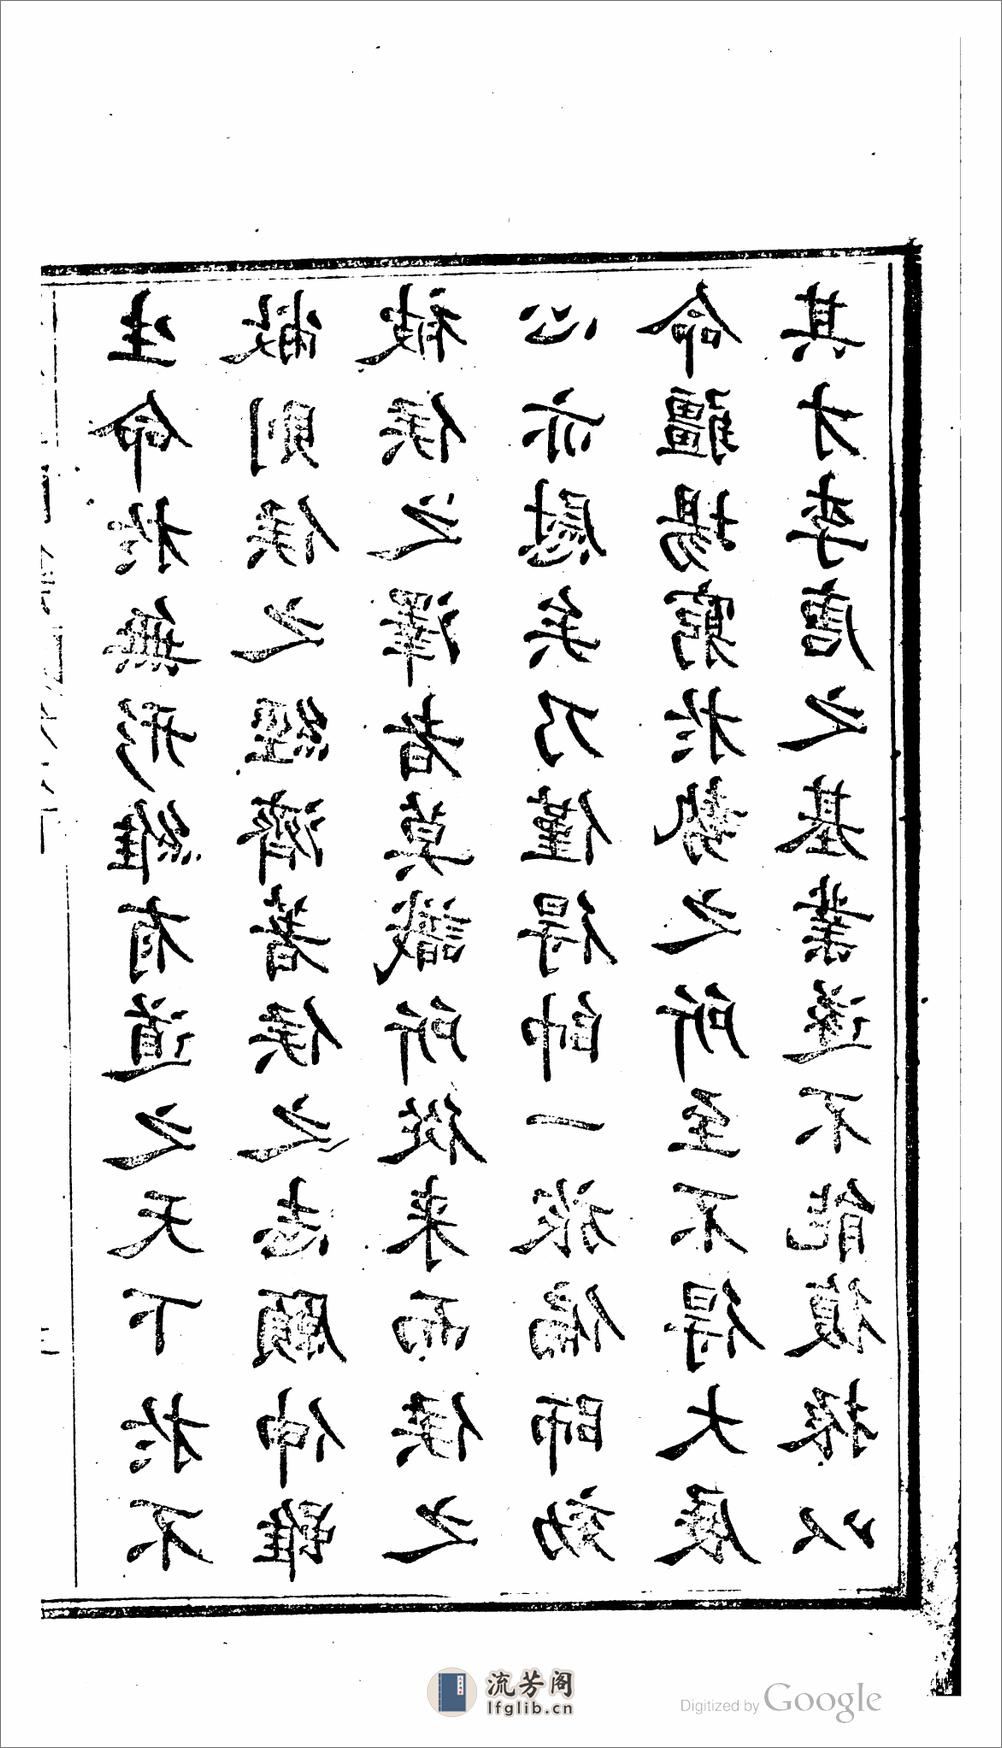 生命於無形維有道之天下於不
敝則侯之經濟著侯之志願伸雖
被侯之澤者莫識所從来而侯之
心亦慰矣乃僅得帥一旅偏師効
命疆場窮於勢之所至不得大展
其才李唐之基業遂不能復振以
流芳阁
lfglib.cn
Digitized by Google